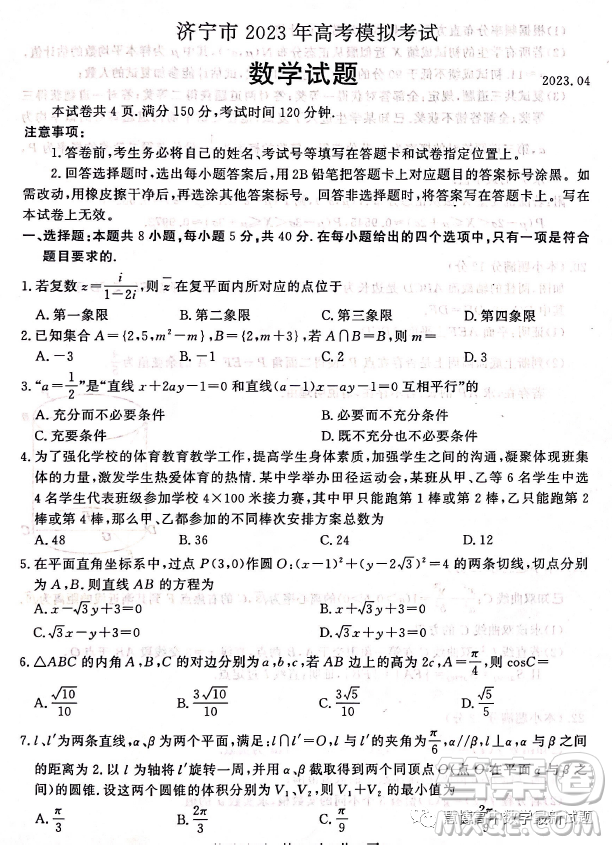 济宁市 2023 年高考模拟考试
数学试题
2023.04
本试卷共 4 页.满分 150 分,考试时间 120 分钟.
注意事项:
1.答卷前,考生务必将自己的姓名、考试号等填写在答题卡和试卷指定位置上。
2.回答选择题时,选出每小题答案后,用 2B 铅笔把答题卡上对应题目的答案标号涂黑。如
需改动,用橡皮擦干净后,再选涂其他答案标号。回答非选择题时,将答案写在答题卡上。写在
本试卷上无效。
一、选择题:本题共 8 小题,每小题 5 分,共 40 分.在每小题给出的四个选项中,只有一项是符合
题目要求的.
1.若复数 z=i/(1-2i),则 z̄ 在复平面内所对应的点位于
A.第一象限 B.第二象限 C.第三象限 D.第四象限
2.已知集合 A={2,5,m²-m},B={2,m+3},若 A∩B=B,则 m=
A.-3 B.-1 C.2 D.3
3.“a=1/2”是“直线 x+2ay-1=0 和直线(a-1)x-ay-1=0 互相平行”的
A.充分而不必要条件 B.必要而不充分条件
C.充要条件 D.既不充分也不必要条件
4.为了强化学校的体育教育教学工作,提高学生身体素质,加强学生之间的沟通,凝聚班级集
体的力量,激发学生热爱体育的热情。某中学举办田径运动会,某班从甲、乙等 6 名学生中选
4 名学生代表班级参加学校 4×100 米接力赛,其中甲只能跑第 1 棒或第 2 棒,乙只能跑第
2 棒或第 4 棒,那么甲、乙都参加的不同棒次安排方案总数为
A.48 B.36 C.24 D.12
5.在平面直角坐标系中,过点 P(3,0)作圆 O:(x-1)²+(y-2√3)²=4 的两条切线,切点分别
为 A、B,则直线 AB 的方程为
A.x-√3y+3=0 B.x+√3y+3=0
C.√3x-y+3=0 D.√3x+y+3=0
6.△ABC 的内角 A,B,C 的对边分别为 a,b,c,若 AB 边上的高为 2c,A=π/4,则 cosC=
A.√10/10 B.3√10/10 C.3√5/10 D.√5/5
7.l、l′为两条直线,α,β为两个平面,满足:l∩l′=O,l 与 l′的夹角为π/6,α//β,l⊥α,α与β之间
的距离为 2.以 l 为轴将 l′旋转一周,并用α、β截得到两个同顶点 O(点 O 在平面α与β之
间)的圆锥.设这两个圆锥的体积分别为 V₁、V₂,则 V₁+V₂ 的最小值为
A.π/3 B.2π/3 C.π/9 D.2π/9